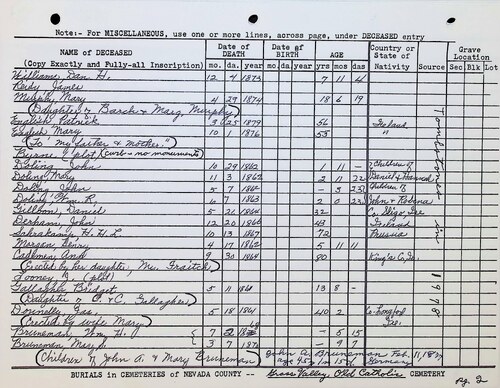 Note:- For MISCELLANEOUS, use one or more lines, across page, under DECEASED entry
NAME of DECEASED
(Copy Exactly and Fully-all Inscription)
Date of DEATH
mo. da. year
Date of BIRTH
mo. da. year
AGE
yrs mos das
Country or State of Nativity
Source
Grave Location
Sec Blk Lot
Williams, Dan H. 12 4 1873 7 11 4
Reidy James
Murphy, Mary 4 29 1874 18 6 19
(Daughter of Barth & Marg. Murphy)
English Patrick 3 25 1879 56 Ireland
English Mary 10 1 1876 53 "
(To my sister & mother.")
Byrne (plot) (curb - no monuments)
Doling John 10 29 1862 1 11 - Children of
Doling Mary 11 3 1862 2 11 22 Daniel & Hannah
Doling John 5 7 1861 - 3 23 Children of
Doling Wm R. 6 7 1863 2 0 23 John & Robena
Gilloon, Daniel 5 21 1864 32 Co. Sligo Ire
Derham, John 12 20 1866 43 Ireland
Schrakamp H. H. L. 10 13 1867 72 Prussia
Morgan Henry 4 17 1862 5 11 11
Cashman Ann 9 30 1864 80 King's Co. Ire
(Erected by her daughter, Mrs.
Looney D. (plot)
Gallagher Bridget 5 11 1861 13 8 -
(Daughter of O. & C. Gallagher)
Donnelly, Jas. 5 18 1861 40 2 Co. Longford Ire.
(Erected by wife Mary)
Bruneman Wm H. 7 22 - 5 15
Bruneman Mary J. 3 7 - 9 7
(Children of John A. & Mary Bruneman) John A. Bruneman Feb. 11, 1872
age 45 Germany
Tombstones in 1978
BURIALS in CEMETERIES of NEVADA COUNTY -- Grass Valley Old Catholic CEMETERY
pg. 2